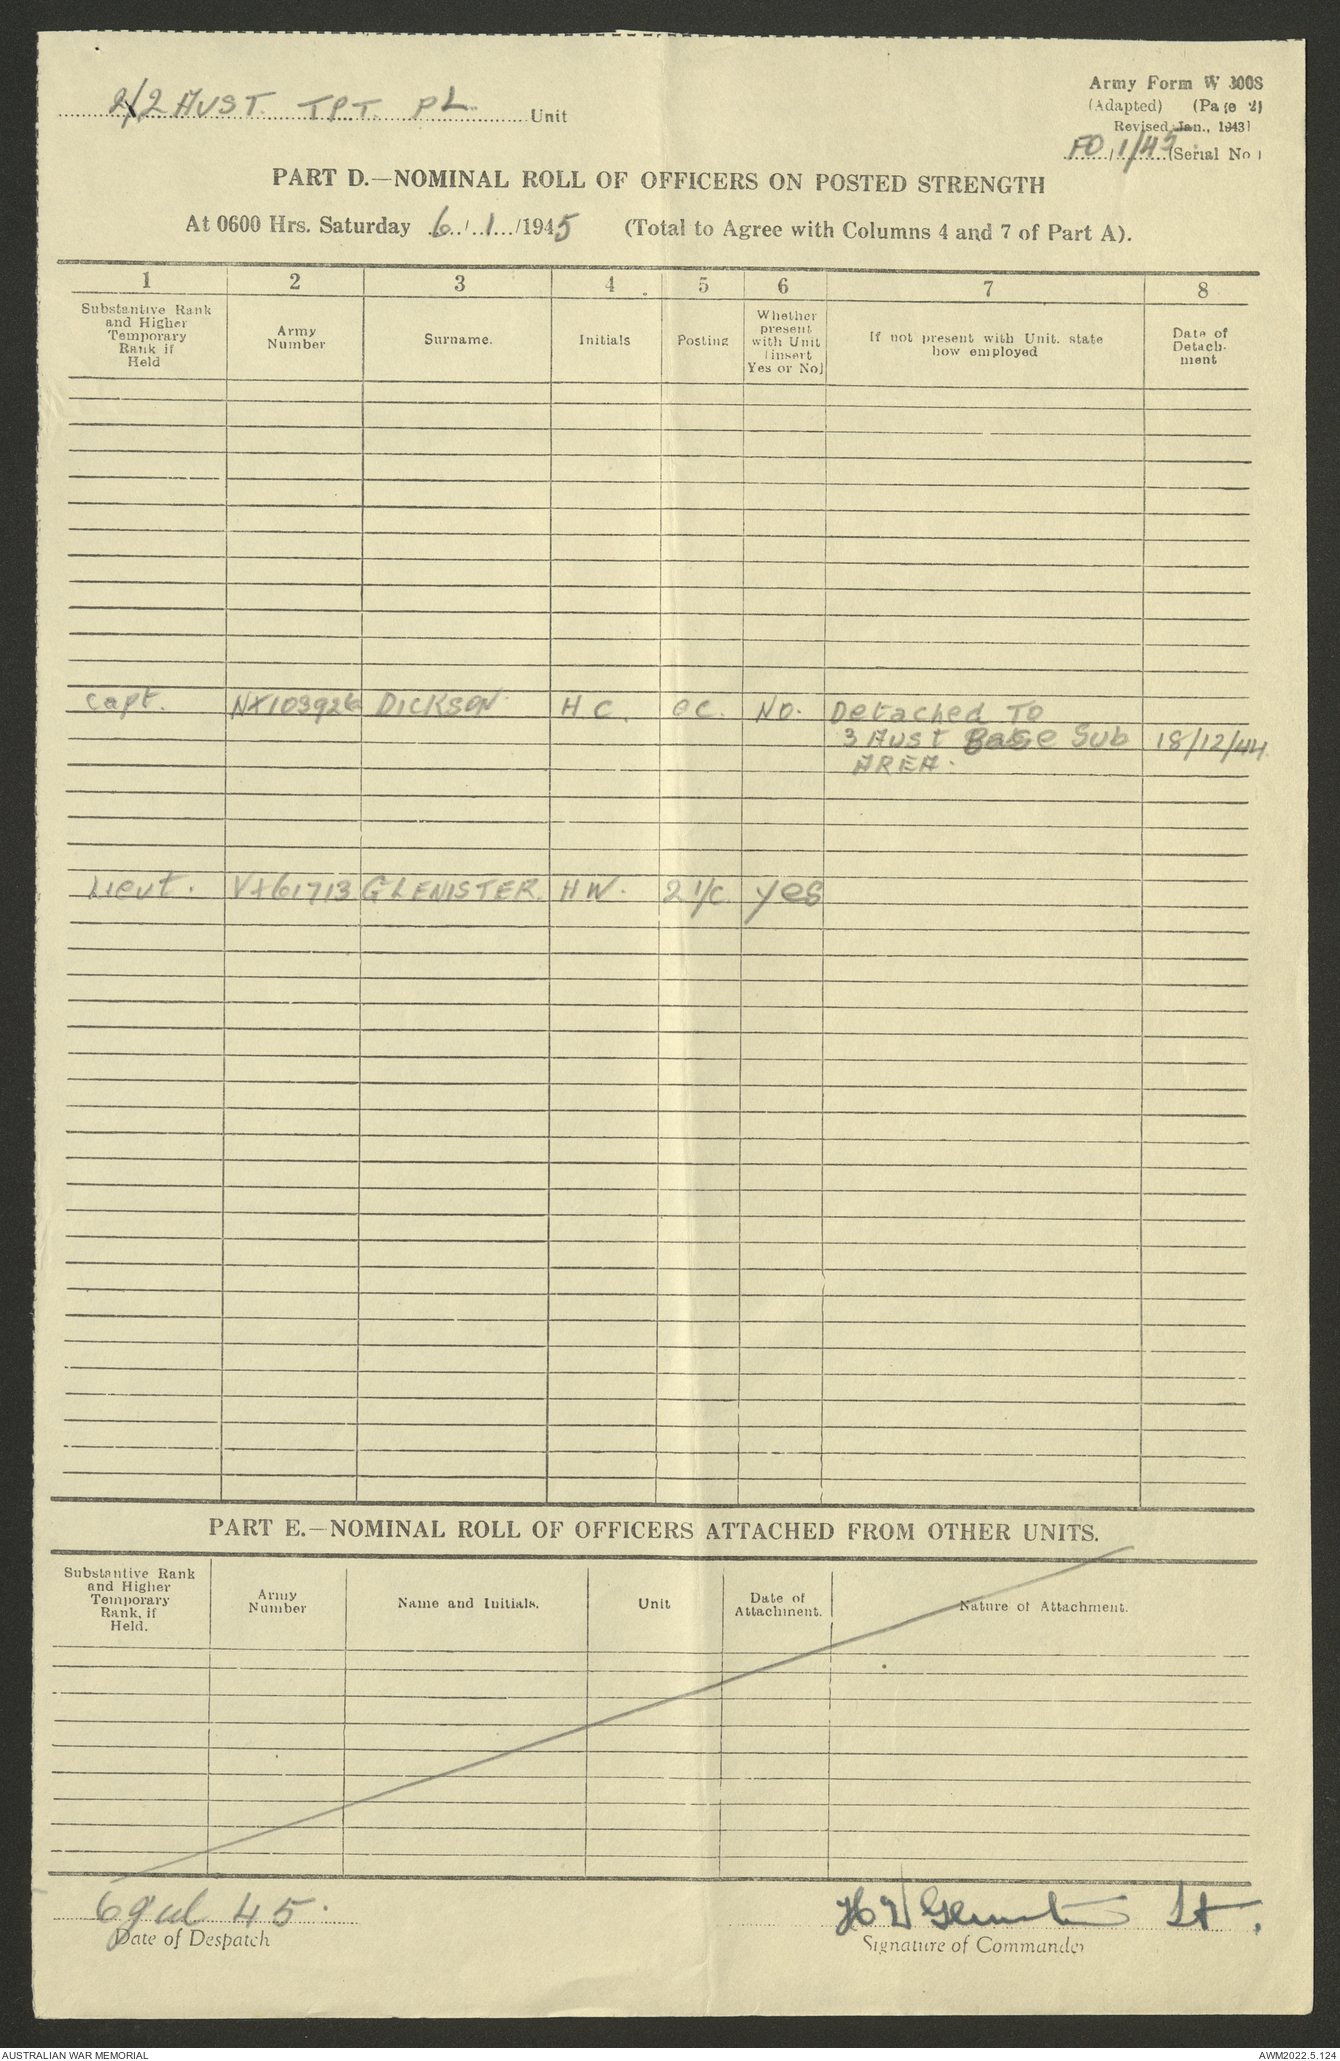 2/2 AUST. TPT. PL. Unit
Army Form W 3008
(Adapted) (Page 2)
Revised Jan., 1943)
FO / 1/45 (Serial No.)
PART D.—NOMINAL ROLL OF OFFICERS ON POSTED STRENGTH
At 0600 Hrs. Saturday 6 / 1 /1945 (Total to Agree with Columns 4 and 7 of Part A).
1 2 3 4 5 6 7 8
Substantive Rank and Higher Temporary Rank if Held
Army Number
Surname.
Initials
Posting
Whether present with Unit (insert Yes or No)
If not present with Unit. state how employed
Date of Detach- ment
Capt. NX103926 DICKSON H C. OC. NO. Detached TO
3 AUST Base Sub 18/12/44
AREA.
Lieut. VX61713 GLENISTER. H W. 2 I/C. yes
PART E.—NOMINAL ROLL OF OFFICERS ATTACHED FROM OTHER UNITS.
Substantive Rank and Higher Temporary Rank, if Held.
Army Number
Name and Initials.
Unit
Date of Attachment.
Nature of Attachment.
45.
Date of Despatch
H W Glenister Lt.
Signature of Commander
AUSTRALIAN WAR MEMORIAL
AWM2022.5.124